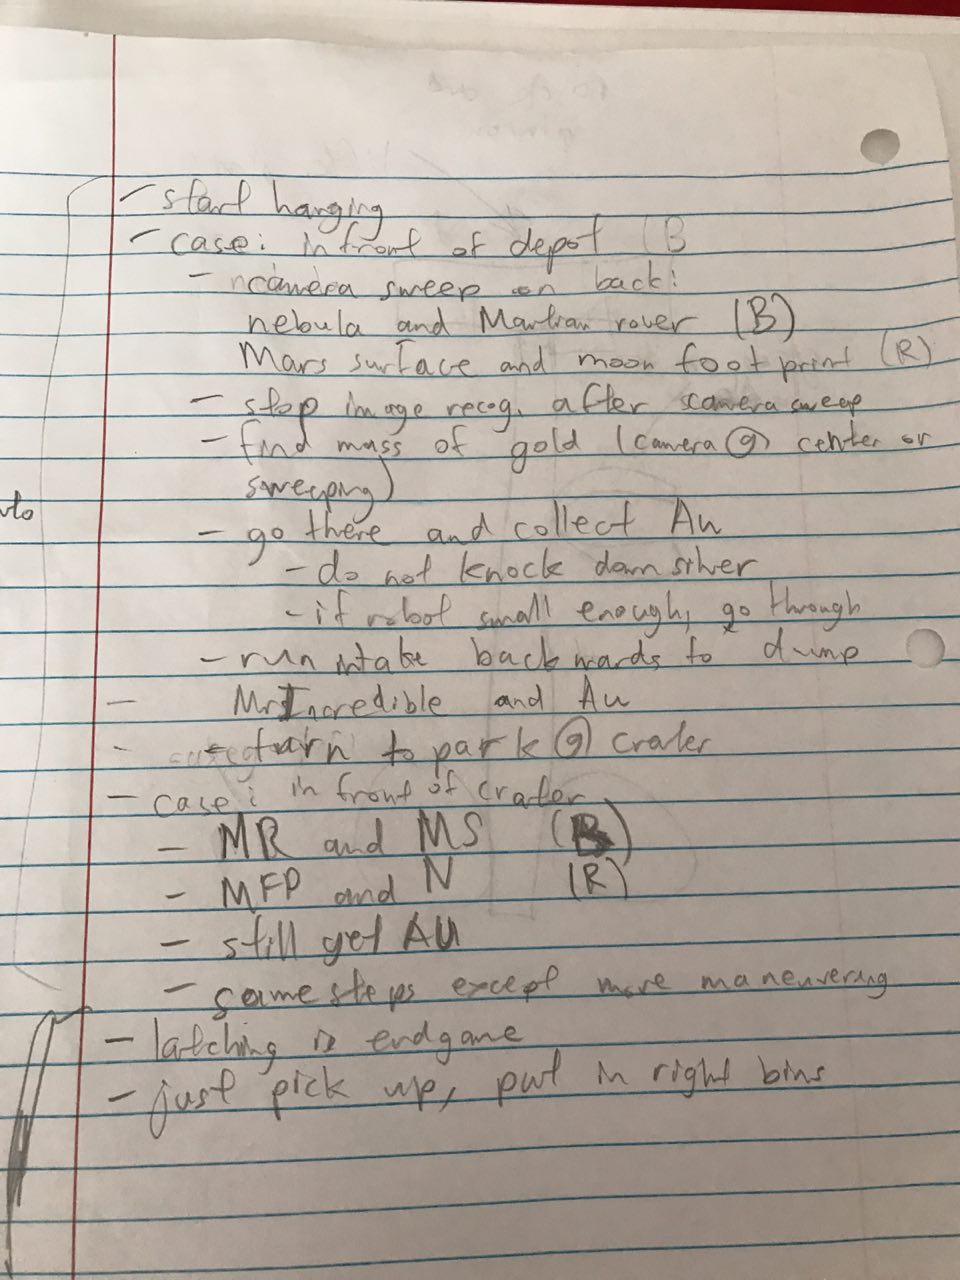 - start hanging
- case: in front of depot (B
- camera sweep on back:
nebula and Martian rover (B)
Mars surface and moon foot print (R)
- stop image recog. after camera sweep
- find mass of gold (camera @ center or
sweeping)
- go there and collect Au
- do not knock down silver
- if robot small enough, go through
- run intake backwards to dump
- Mr Incredible and Au
- turn to park @ crater
- case: in front of crater
- MR and MS (B)
- MFP and N (R)
- still get AU
- same steps except more maneuvering
- latching is endgame
- just pick up, put in right bins